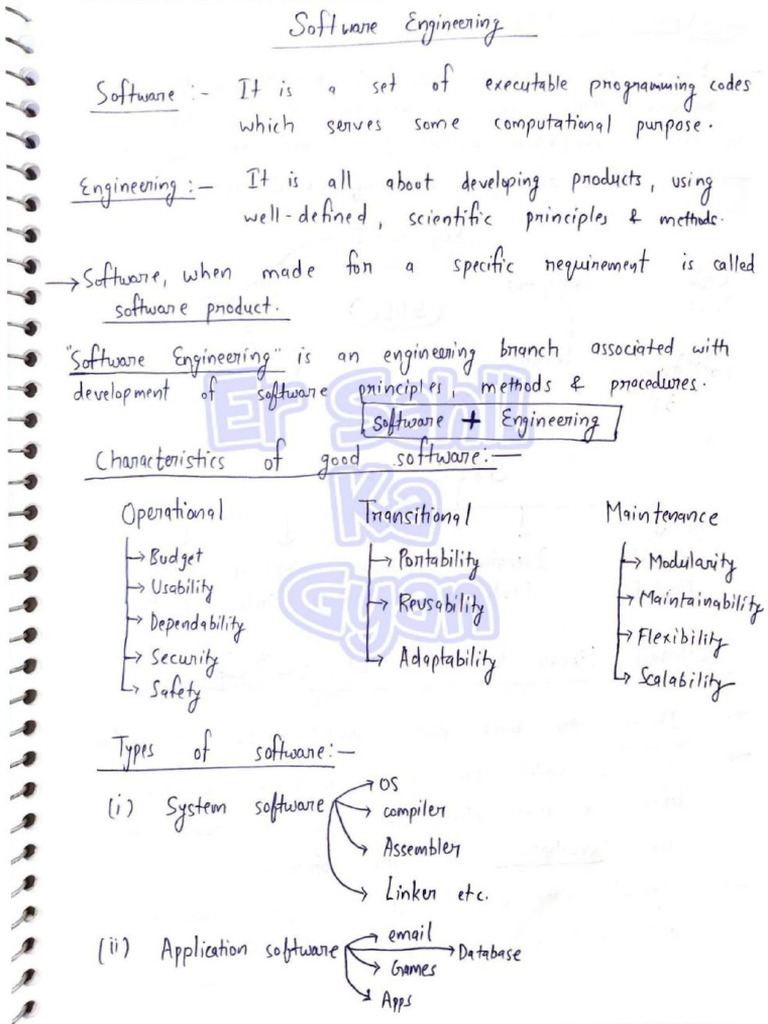 Software Engineering
Software :- It is a set of executable programming codes
which serves some computational purpose.
Engineering :- It is all about developing products, using
well-defined, scientific principles & methods.
→ Software, when made for a specific requirement is called
software product.
"Software Engineering" is an engineering branch associated with
development of software principles, methods & procedures.
Software + Engineering
Characteristics of good software:-
Operational Transitional Maintenance
→ Budget → Portability → Modularity
→ Usability → Reusability → Maintainability
→ Dependability → Flexibility
→ Security → Adaptability → Scalability
→ Safety
Types of software:-
(i) System software → OS
→ compiler
→ Assembler
→ Linker etc.
(ii) Application software → email
→ Database
→ Games
→ Apps
Er Sahil
Ka
Gyan